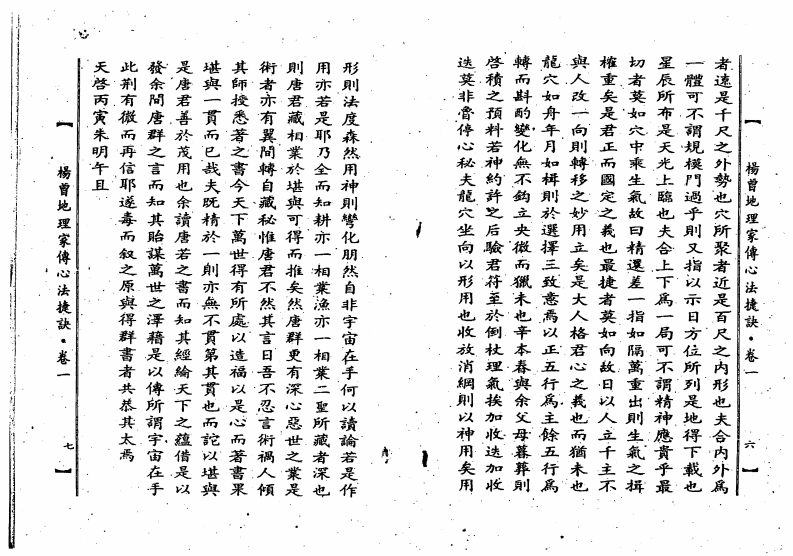 楊曾地理家傳心法捷訣・卷一
六
者遠是千尺之外勢也穴所聚者近是百尺之內形也夫合內外爲
一體可不謂規模門過乎則又指以示日方位所列是地得下載也
星辰所布是天光上臨也夫合上下爲一局可不謂精神應貴乎最
切者莫如穴中乘生氣故曰精選差一指如隔萬重出則生氣之揖
權重矣是君正而國定之義也最捷者莫如向故日以人立千主不
與人改一向則轉移之妙用立矣是大人格君心之義也而猶未也
龍穴如舟年月如楫則於選擇三致意焉以正五行爲主餘五行爲
轉而斟酌變化無不鈎立央微而獵未也辛本春與余父母暮葬則
啓積之預料若神約許之后驗君符至於倒杖理氣挨加收迭加收
迭莫非曾停心秘夫龍穴坐向以形用也收放消綱則以神用矣用
形則法度森然用神則彎化朋然自非宇宙在手何以讀論若是作
用亦若是耶乃全而知耕亦一相業漁亦一相業二聖所藏者深也
則唐君藏相業於堪與可得而推矣然唐群更有深心惡世之業是
術者亦有異間轉自藏秘惟唐君不然其言日吾不忍言術禍人傾
其師授悉著之書今天下萬世得有所處以造福以是心而著書果
堪與一貫而已哉夫既精於一則亦無不貫第其貫也而詑以堪與
是唐君善於茂用也余讀唐若之書而知其經綸天下之蘊借是以
發余間唐群之言而知其貽謀萬世之澤藉是以傳所謂宇宙在手
此荆有微而再信耶遂毒而叙之原與得群書者共恭其太焉
天啓丙寅朱明午旦
楊曾地理家傳心法捷訣・卷一
七